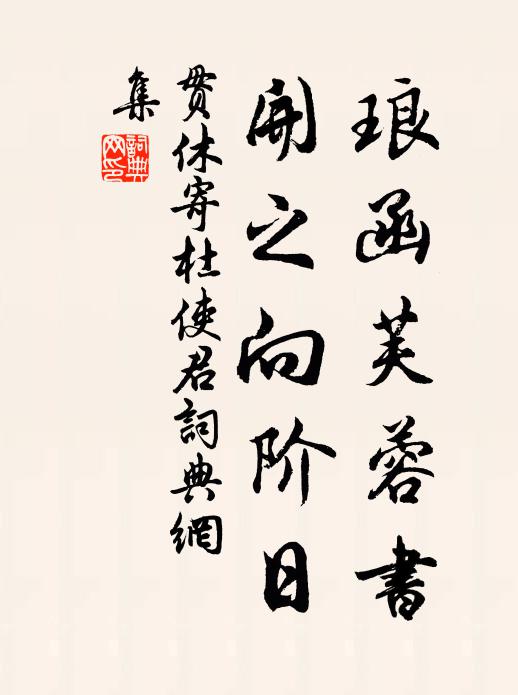 琅函芙蓉書
開之向阶日
贯休寄杜使君詞典網
集
詞典
网印